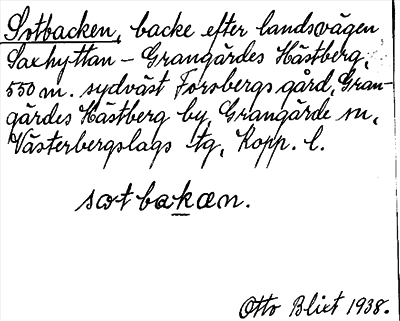 Sotbacken, backe efter landsvägen
Saxhyttan – Grangärdes Hästberg,
550 m. sydväst Forsbergs gård, Gran-
gärdes Hästberg by, Grangärde sn,
Västerbergslags tg, Kopp. l.
sɷtbakæn.
Otto Blixt 1938.